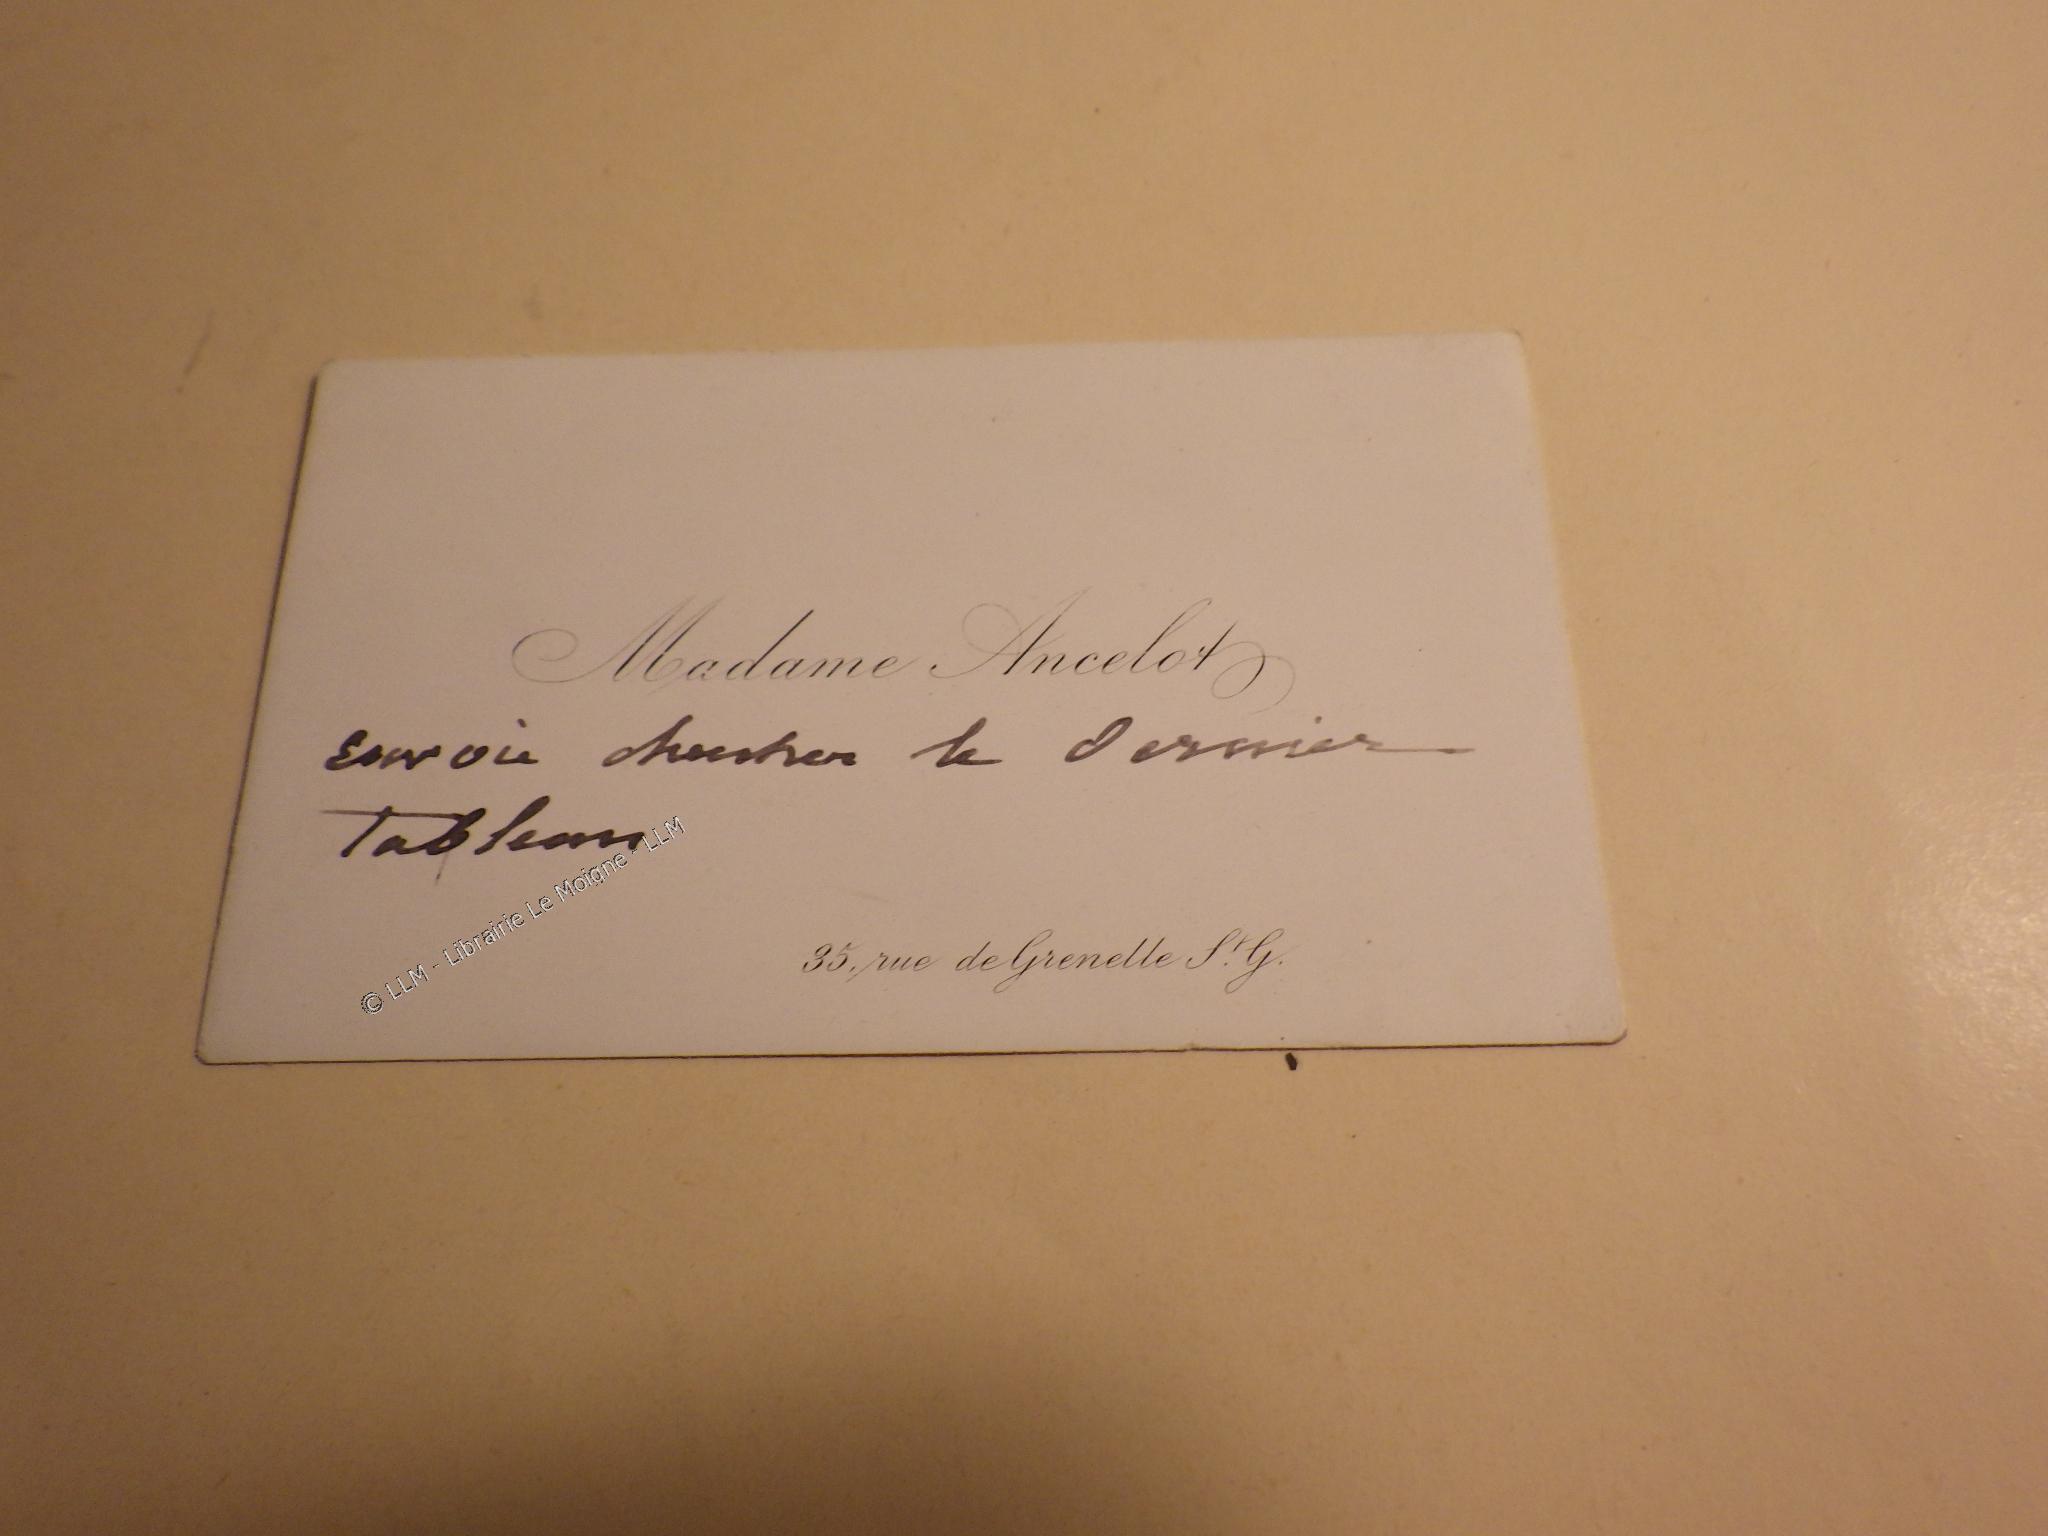 Madame Ancelot
envoie chercher le dernier
Tableau
35, rue de Grenelle St. G.
© LLM - Librairie Le Moigne - LLM